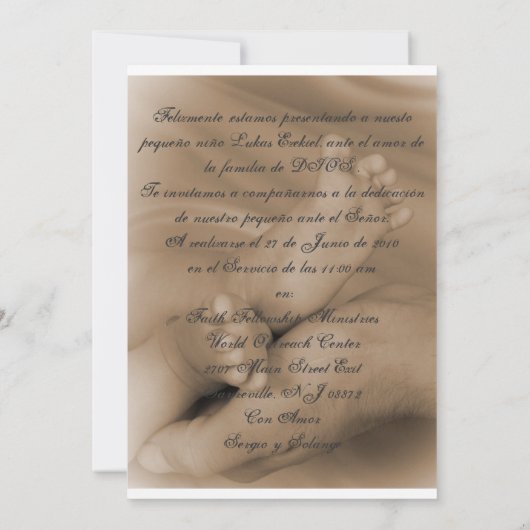 Felizmente ,estamos presentando a nuesto
pequeño niño Lukas Ezekiel, ante el amor de
la familia de DIOS .
Te invitamos a compañarnos a la dedicación
de nuestro pequeño ante el Señor.
A realizarse el 27 de Junio de 2010
en el Servicio de las 11:00 am
en:
Faith Fellowship Ministries
World Outreach Center
2707 Main Street Exit
Sayreville, NJ 08872
Con Amor
Sergio y Solange